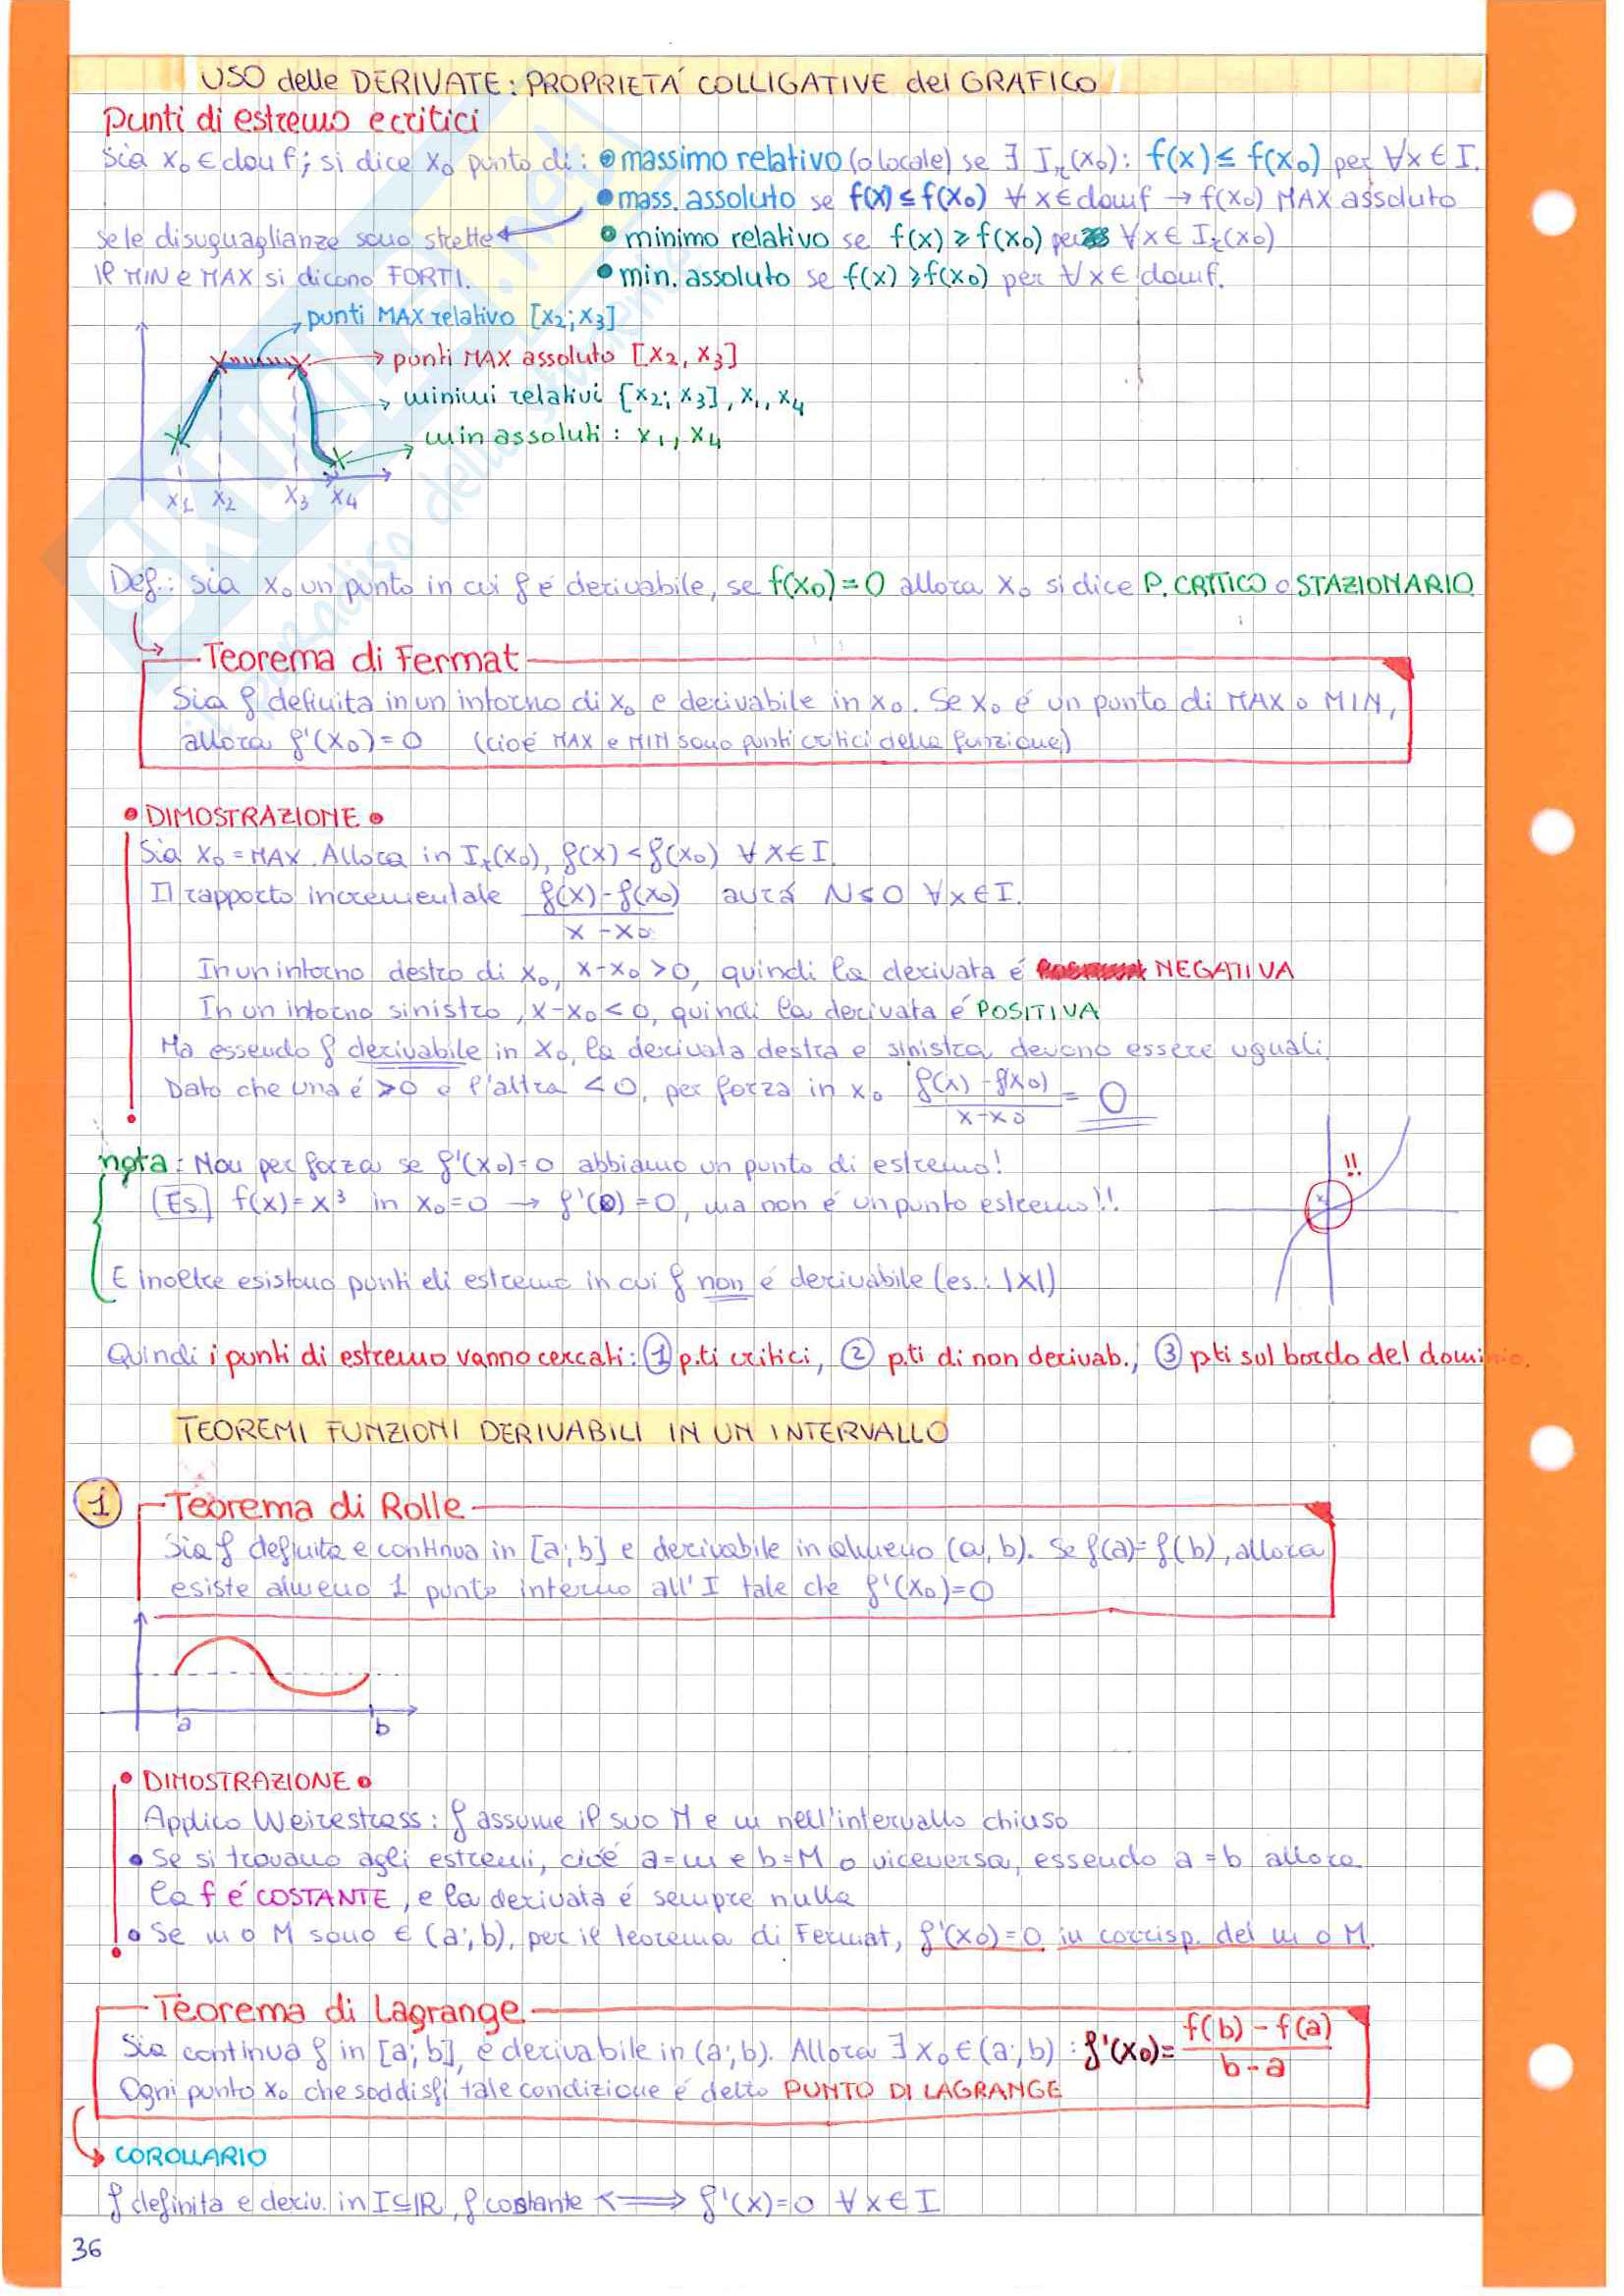 USO delle DERIVATE: PROPRIETÀ COLLIGATIVE del GRAFICO
Punti di estremo e critici
Sia x₀ ∈ dom f; si dice x₀ punto di: • massimo relativo (o locale) se ∃ Iᵣ(x₀): f(x) ≤ f(x₀) per ∀x ∈ I.
• mass. assoluto se f(x) ≤ f(x₀) ∀x ∈ domf → f(x₀) MAX assoluto
se le disuguaglianze sono strette • minimo relativo se f(x) ≥ f(x₀) per ∀x ∈ Iᵣ(x₀)
il MIN e MAX si dicono FORTI. • min. assoluto se f(x) ≥ f(x₀) per ∀x ∈ domf.
punti MAX relativo [x₂; x₃]
punti MAX assoluto [x₂, x₃]
minimi relativi [x₂; x₃], x₁, x₄
min assoluti: x₁, x₄
x₁ x₂ x₃ x₄
Def.: sia x₀ un punto in cui f é derivabile, se f(x₀) = 0 allora x₀ si dice P. CRITICO o STAZIONARIO
Teorema di Fermat
Sia f definita in un intorno di x₀ e derivabile in x₀. Se x₀ é un punto di MAX o MIN,
allora f'(x₀) = 0 (cioé MAX e MIN sono punti critici della funzione)
• DIMOSTRAZIONE •
Sia x₀ = MAX. Allora in Iᵣ(x₀), f(x) < f(x₀) ∀x ∈ I.
Il rapporto incrementale f(x) - f(x₀) / x - x₀ avrá N ≤ 0 ∀x ∈ I.
In un intorno destro di x₀, x - x₀ > 0, quindi la derivata é NEGATIVA
In un intorno sinistro, x - x₀ < 0, quindi la derivata é POSITIVA
Ma essendo f derivabile in x₀, la derivata destra e sinistra devono essere uguali.
Dato che una é > 0 e l'altra < 0, per forza in x₀ f(x) - f(x₀) / x - x₀ = 0
nota: Non per forza se f'(x₀) = 0 abbiamo un punto di estremo!
!!
Es. f(x) = x³ in x₀ = 0 → f'(0) = 0, ma non é un punto estremo!!
E inoltre esistono punti di estremo in cui f non é derivabile (es.: |x|)
Quindi i punti di estremo vanno cercati: ① p.ti critici, ② p.ti di non derivab., ③ p.ti sul bordo del dominio.
TEOREMI FUNZIONI DERIVABILI IN UN INTERVALLO
1 Teorema di Rolle
Sia f definita e continua in [a; b] e derivabile in almeno (a, b). Se f(a) = f(b), allora
esiste almeno 1 punto interno all'I tale che f'(x₀) = 0
a b
• DIMOSTRAZIONE •
Applico Weirestrass: f assume il suo M e m nell'intervallo chiuso
• Se si trovano agli estremi, cioé a = m e b = M o viceversa, essendo a = b allora
la f é COSTANTE, e la derivata é sempre nulla
• Se m o M sono ∈ (a; b), per il teorema di Fermat, f'(x₀) = 0 in corrisp. del m o M.
Teorema di Lagrange
Sia continua f in [a; b], e derivabile in (a; b). Allora ∃ x₀ ∈ (a; b) : f'(x₀) = f(b) - f(a) / b - a
Ogni punto x₀ che soddisfi tale condizione é detto PUNTO DI LAGRANGE
COROLLARIO
f definita e deriv. in I ⊆ ℝ, f costante ⟺ f'(x) = 0 ∀x ∈ I
36